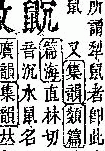 所謂犁鼠者卽此
鼠
又集韻類篇
篇海直林切
音沉水鼠名
廣韻集韻𠀤